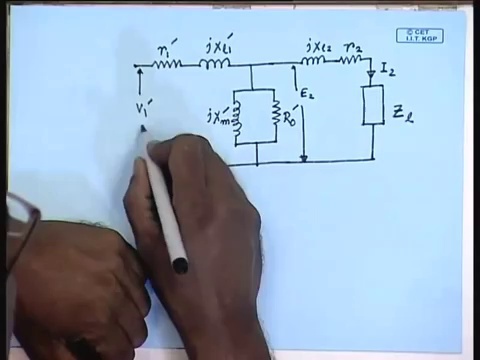 © CET
I.I.T. KGP
r₁′ jxℓ₁′ jxℓ₂ r₂
I₂
V₁′ jx′m R₀′ E₂ Zℓ